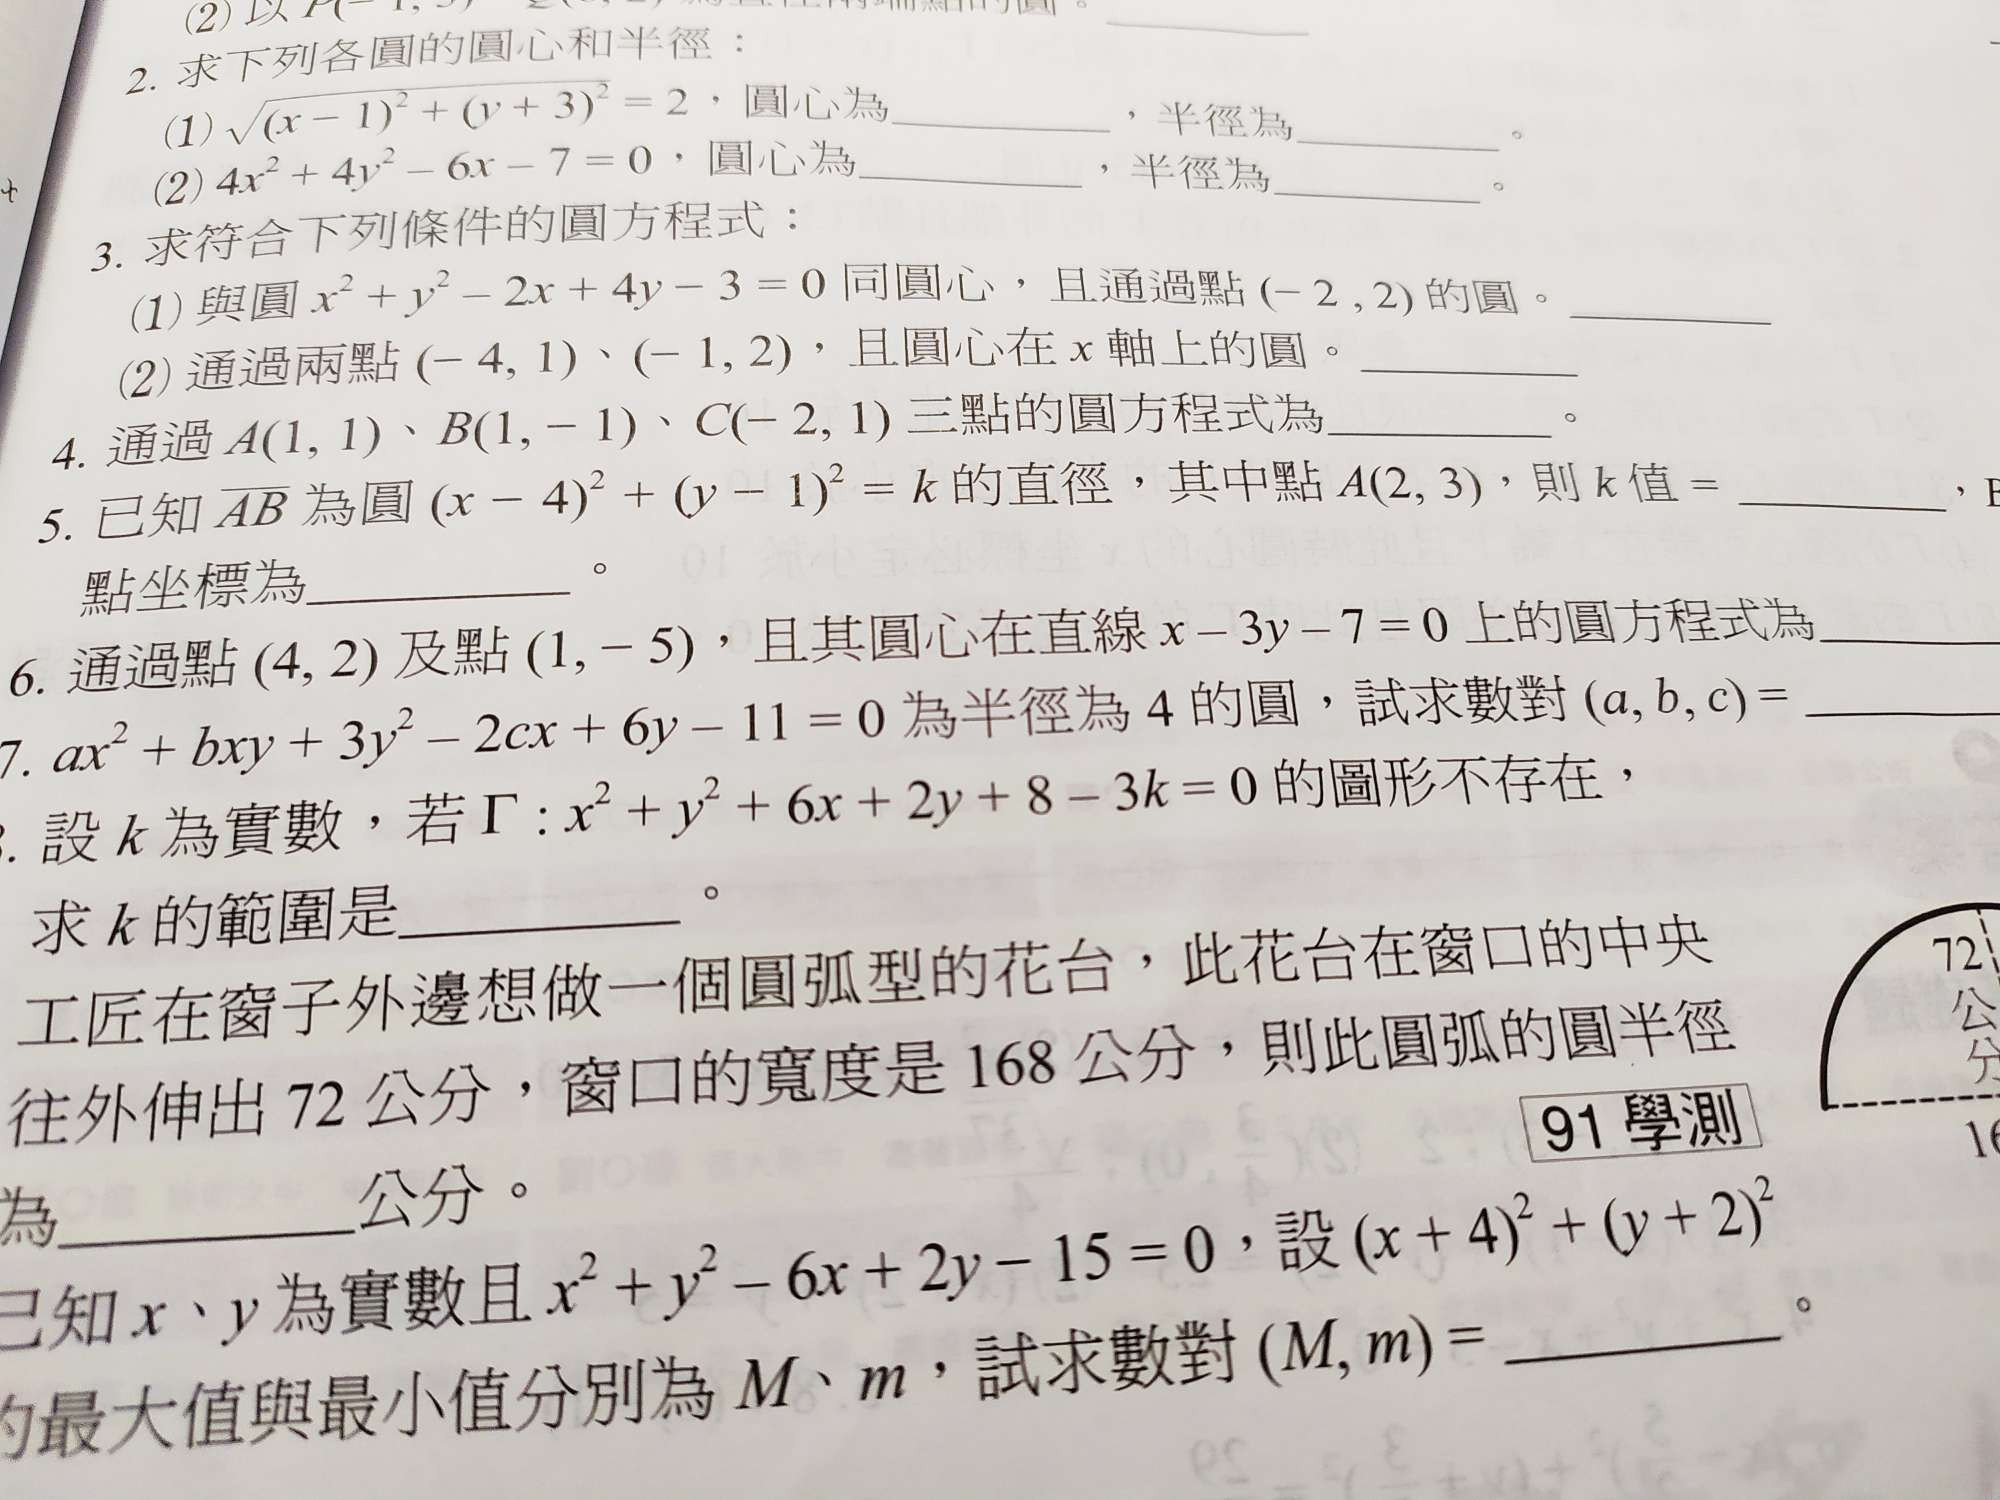 2. 求下列各圓的圓心和半徑：
(1) √(x − 1)² + (y + 3)² = 2，圓心為__________，半徑為__________。
(2) 4x² + 4y² − 6x − 7 = 0，圓心為__________，半徑為__________。
3. 求符合下列條件的圓方程式：
(1) 與圓 x² + y² − 2x + 4y − 3 = 0 同圓心，且通過點 (− 2 , 2) 的圓。__________
(2) 通過兩點 (− 4, 1)、(− 1, 2)，且圓心在 x 軸上的圓。__________
4. 通過 A(1, 1)、B(1, − 1)、C(− 2, 1) 三點的圓方程式為__________。
5. 已知 AB 為圓 (x − 4)² + (y − 1)² = k 的直徑，其中點 A(2, 3)，則 k 值 = __________，B
點坐標為__________。
6. 通過點 (4, 2) 及點 (1, − 5)，且其圓心在直線 x − 3y − 7 = 0 上的圓方程式為__________
7. ax² + bxy + 3y² − 2cx + 6y − 11 = 0 為半徑為 4 的圓，試求數對 (a, b, c) = __________
. 設 k 為實數，若 Γ : x² + y² + 6x + 2y + 8 − 3k = 0 的圖形不存在，
求 k 的範圍是__________。
工匠在窗子外邊想做一個圓弧型的花台，此花台在窗口的中央
往外伸出 72 公分，窗口的寬度是 168 公分，則此圓弧的圓半徑
為__________公分。
91 學測
72
公
分
已知 x、y 為實數且 x² + y² − 6x + 2y − 15 = 0，設 (x + 4)² + (y + 2)²
的最大值與最小值分別為 M、m，試求數對 (M, m) = __________。